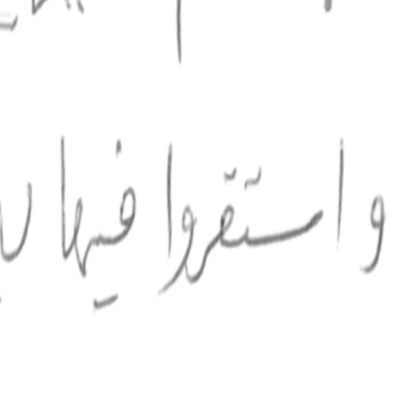 واستقروا فيها